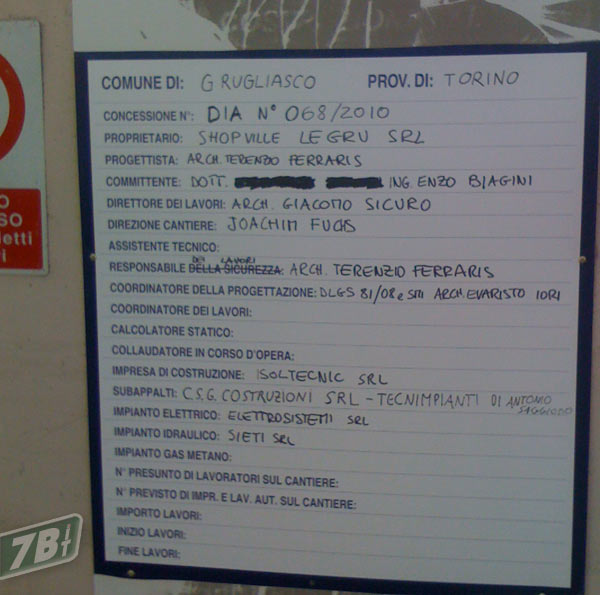 COMUNE DI: GRUGLIASCO PROV. DI: TORINO
CONCESSIONE N°: DIA N° 068/2010
PROPRIETARIO: SHOPVILLE LE GRU SRL
PROGETTISTA: ARCH. TERENZO FERRARIS
COMMITTENTE: DOTT. ING. ENZO BIAGINI
DIRETTORE DEI LAVORI: ARCH. GIACOMO SICURO
DIREZIONE CANTIERE: JOACHIM FUCHS
ASSISTENTE TECNICO:
DEI LAVORI
RESPONSABILE DELLA SICUREZZA: ARCH. TERENZIO FERRARIS
COORDINATORE DELLA PROGETTAZIONE: DLGS 81/08 e SMI ARCH EVARISTO IORI
COORDINATORE DEI LAVORI:
CALCOLATORE STATICO:
COLLAUDATORE IN CORSO D'OPERA:
IMPRESA DI COSTRUZIONE: ISOLTECNIC SRL
SUBAPPALTI: C.S.G. COSTRUZIONI SRL - TECNIMPIANTI DI ANTONIO
IMPIANTO ELETTRICO: ELETTROSISTEMI SRL
IMPIANTO IDRAULICO: SIETI SRL
IMPIANTO GAS METANO:
N° PRESUNTO DI LAVORATORI SUL CANTIERE:
N° PREVISTO DI IMPR. E LAV. AUT. SUL CANTIERE:
IMPORTO LAVORI:
INIZIO LAVORI:
FINE LAVORI:
O
SO
etti
ri
7B